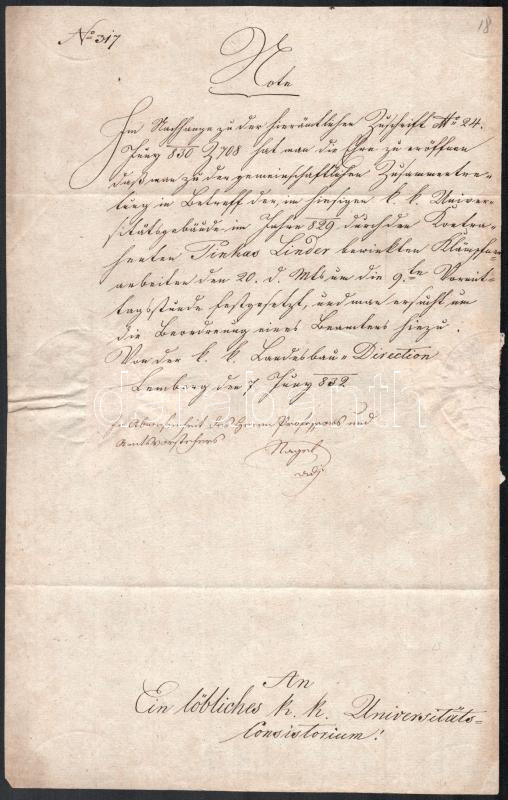 No 317
18
Note
Im Nachhange zu der hierämtlichen Zuschrift 24.
Juny 830 Z 708 hat man die Ehre zu eröffnen
daß man zu der gemeinschaftlichen Zusammentre-
tung in Betreff der, im hiesigen k. k. Univer-
sitätsgebäude im Jahre 829 durch den Kontra-
henten Pinkas Linder bewirkten
arbeiten den 20. d. Mts um die 9.te Vormit-
tagsstunde festgesetzt, und man ersucht um
die Beordnung eines Beamten hiezu.
Von der k. k. Landesbau-Direction
Lemberg den 7 Juny 832
In Abwesenheit des Herrn Professors und
Amtsvorstehers
Nagel
adj
An
Ein löbliches k. k. Universitäts-
Consistorium!
darabanth